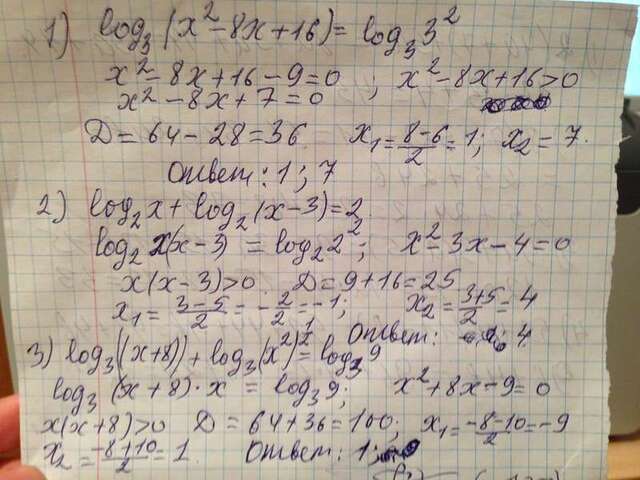 1) log₃(x²-8x+16) = log₃3²
x²-8x+16-9=0 ; x²-8x+16>0
x²-8x+7=0
D=64-28=36 x₁=(8-6)/2=1; x₂=7.
Ответ: 1; 7
2) log₂x+log₂(x-3)=2
log₂x(x-3) = log₂2²; x²-3x-4=0
x(x-3)>0. D=9+16=25
x₁=(3-5)/2=-2/2=-1; x₂=(3+5)/2=4
Ответ: 4
3) log₃((x+8))+log₃(x²)^(1/2)=log₃9
log₃(x+8)·x = log₃9; x²+8x-9=0
x(x+8)>0 D=64+36=100; x₁=(-8-10)/2=-9
x₂=(-8+10)/2=1. Ответ: 1;